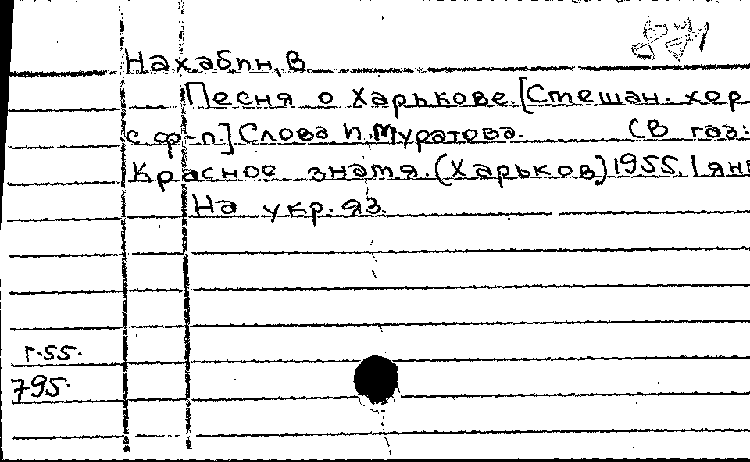 Нахабин, В.
Песня о Харькове. [Смешан. хор
с ф-п.] Слова И. Муратова. (В газ:
Красное знамя. (Харьков) 1955. 1 янв
На укр. яз.
г.55.
795.